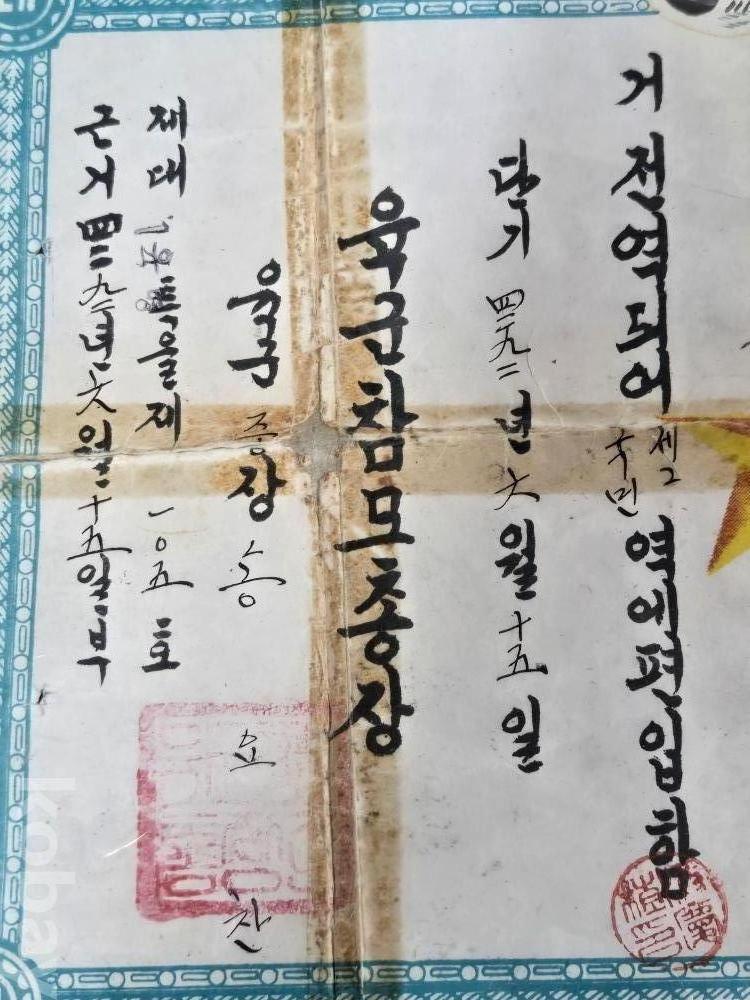 거 전역되어 제2 국민 역에편입함
단기 四二九二년 六월 十五일
육군참모총장
육군 중장 송 요 찬
제대 특을제 一〇五 호
근거 四二九二년 六월 十五일부
koba